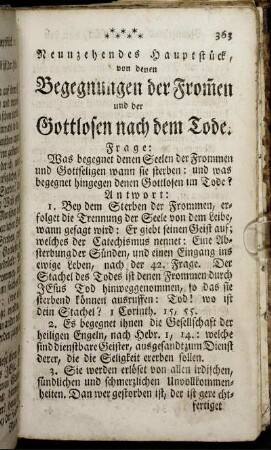 ***** 363
Neunzehendes Hauptstück,
von denen
Begegnungen der From̄en
und der
Gottlosen nach dem Tode.
Frage:
Was begegnet denen Seelen der Frommen
und Gottseligen wann sie sterben: und was
begegnet hingegen denen Gottlosen im Tode?
Antwort:
1. Bey dem Sterben der Frommen, er-
folget die Trennung der Seele von dem Leibe,
wann gesagt wird: Er giebt seinen Geist auf;
welches der Catechismus nennet: Eine Ab-
sterbung der Sünden, und einen Eingang ins
ewige Leben, nach der 42. Frage. Der
Stachel des Todes ist denen Frommen durch
JEsus Tod hinweggenommen, so das sie
sterbend können ausruffen: Tod! wo ist
dein Stachel? 1 Corinth. 15, 55.
2. Es begegnet ihnen die Gesellschaft der
heiligen Engeln, nach Hebr. 1, 14.: welche
sind dienstbare Geister, ausgesandt zum Dienst
derer, die die Seligkeit ererben sollen.
3. Sie werden erlöset von allen irdischen,
sündlichen und schmerzlichen Unvollkommen-
heiten. Dan wer gestorben ist, der ist gerecht-
fertiget